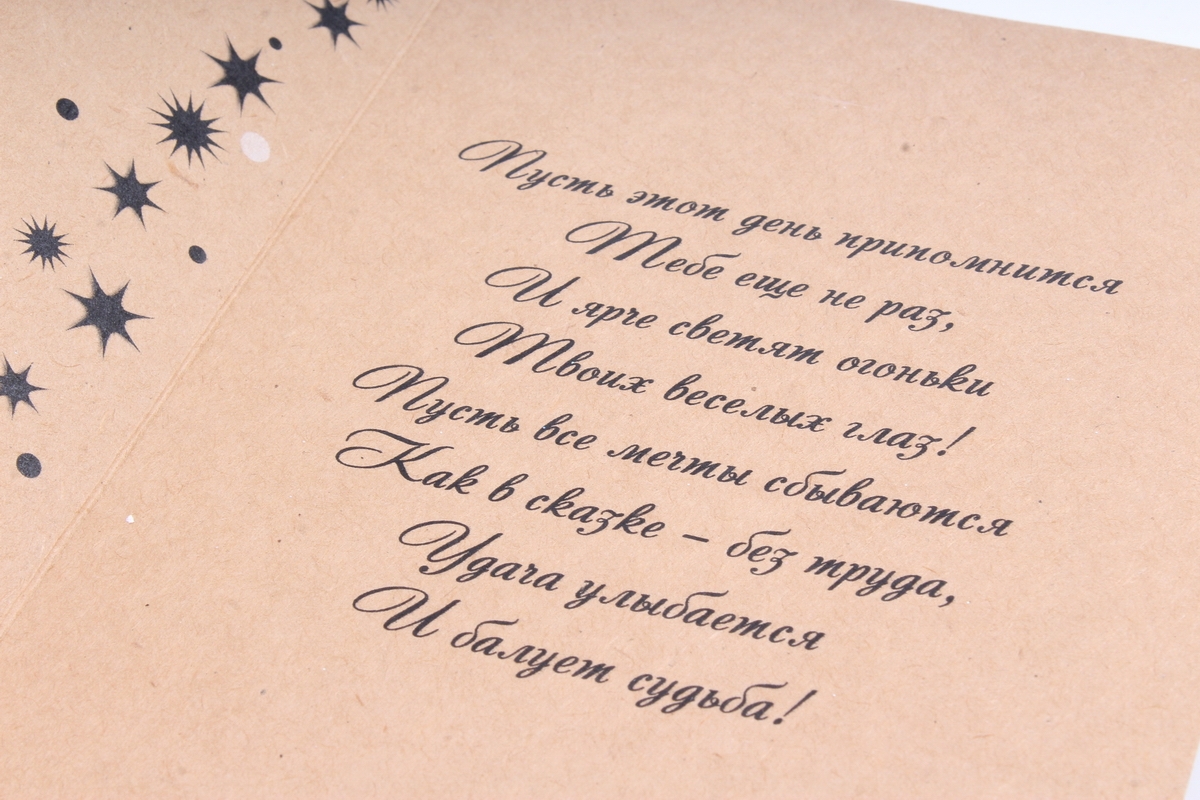 Пусть этот день припомнится
Тебе еще не раз,
И ярче светят огоньки
Твоих веселых глаз!
Пусть все мечты сбываются
Как в сказке – без труда,
Удача улыбается
И балует судьба!